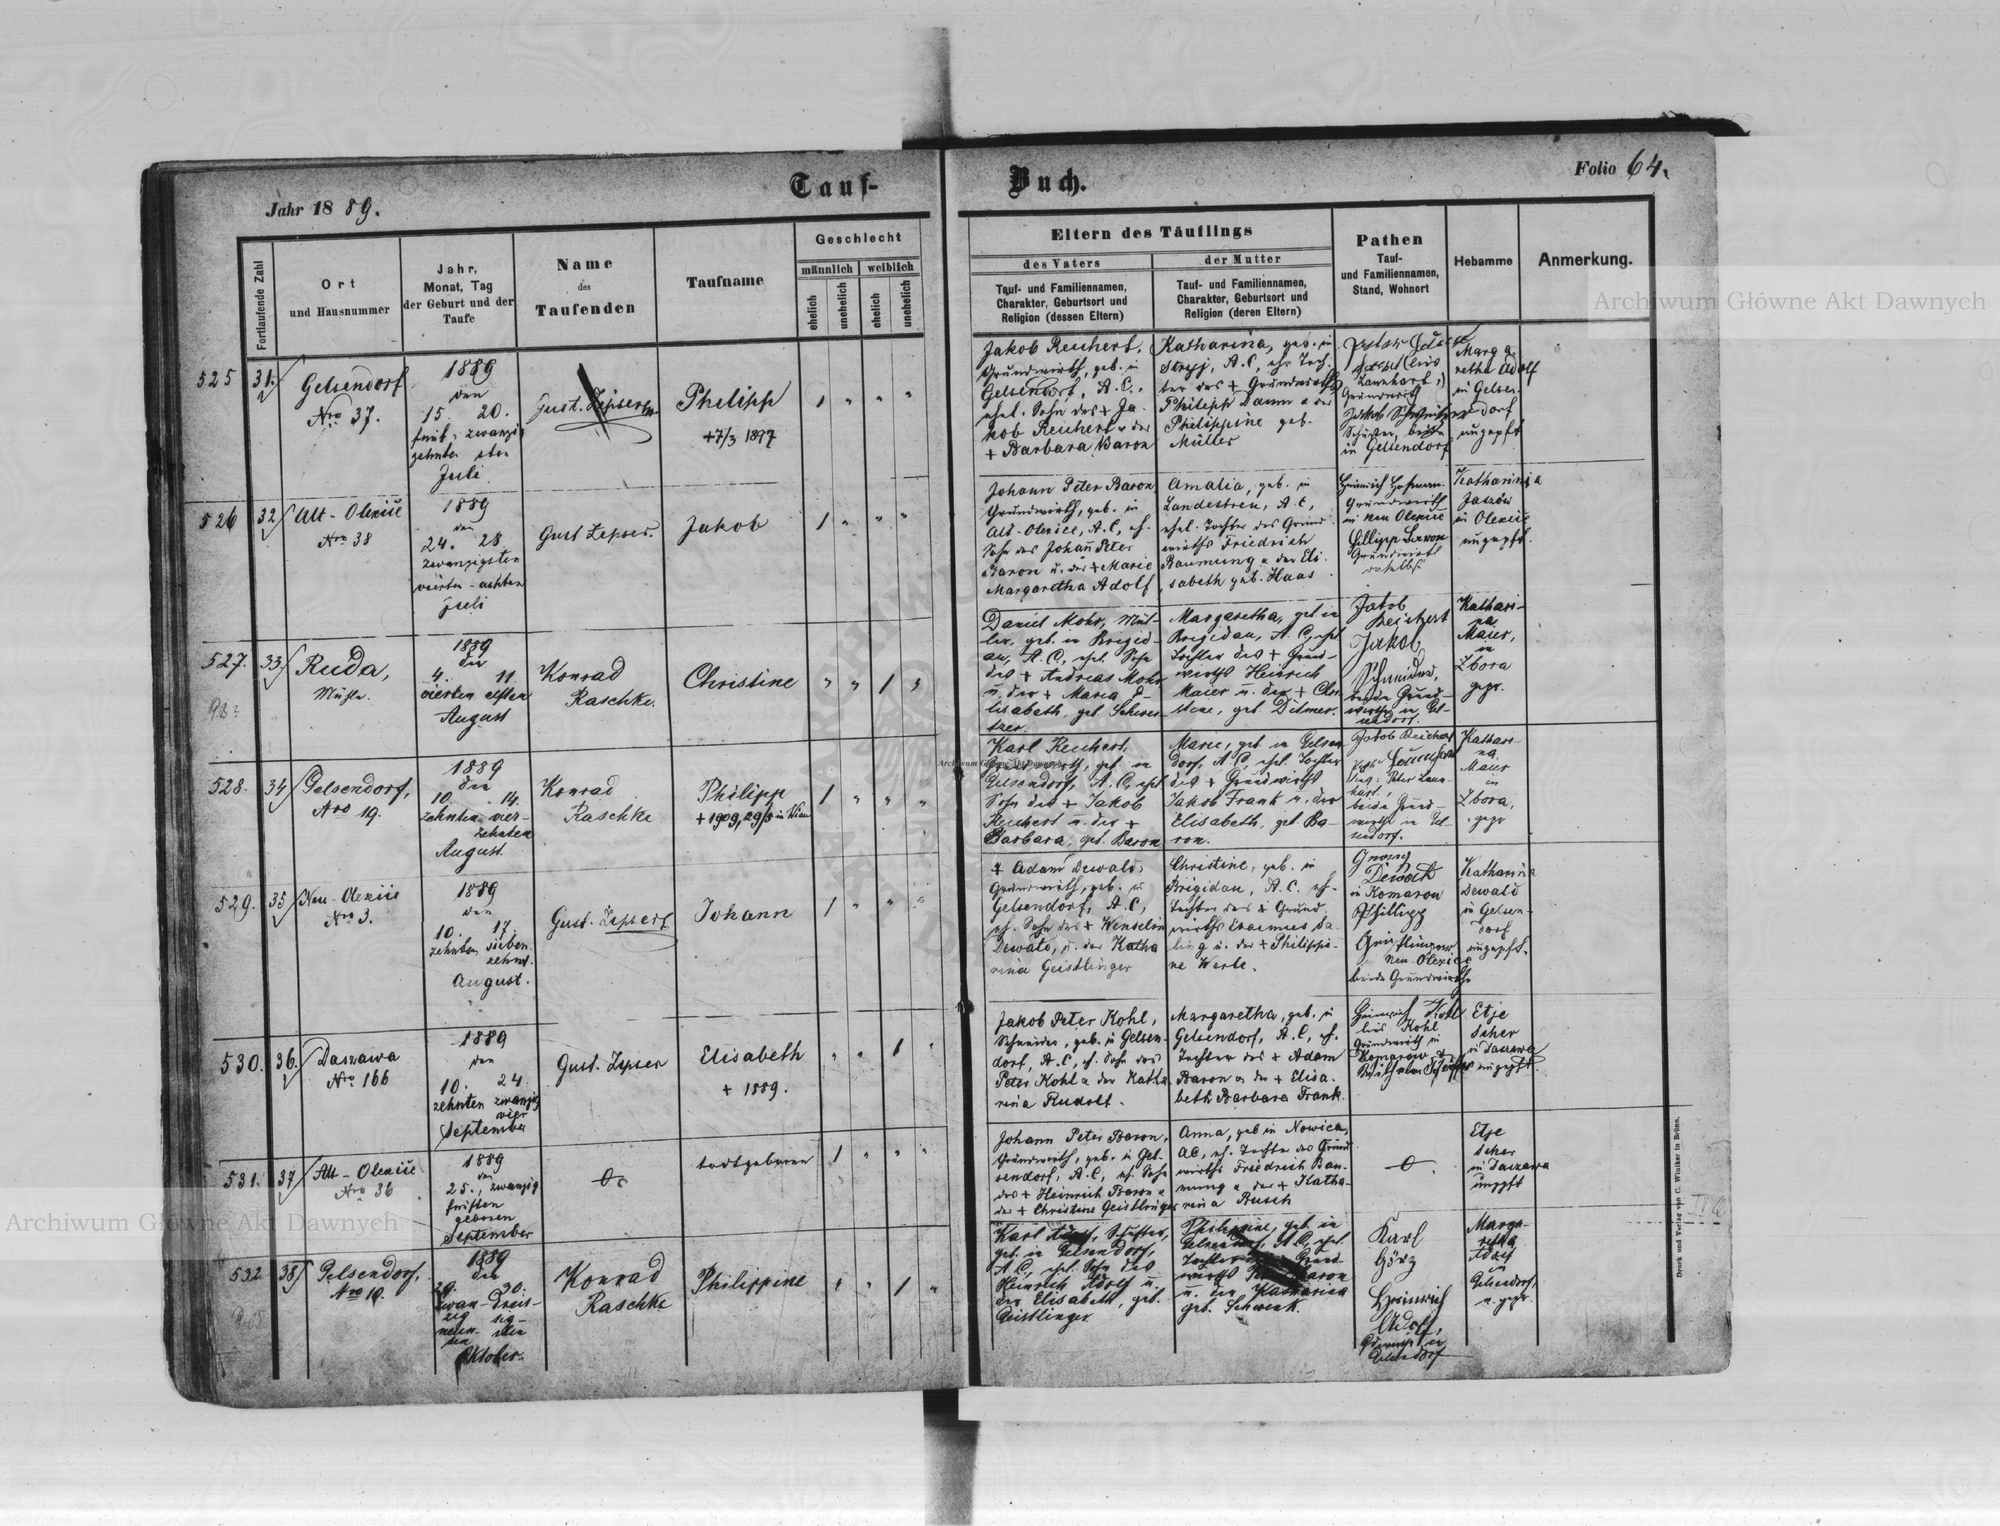 Tauf-
Buch.
Folio 64.
Jahr 1889.
Fortlaufende Zahl
Ort
und Hausnummer
Jahr,
Monat, Tag
der Geburt und der
Taufe
Name
des
Taufenden
Taufname
Geschlecht
männlich
weiblich
ehelich
unehelich
ehelich
unehelich
Eltern des Täuflings
des Vaters
der Mutter
Tauf- und Familiennamen,
Charakter, Geburtsort und
Religion (dessen Eltern)
Tauf- und Familiennamen,
Charakter, Geburtsort und
Religion (deren Eltern)
Pathen
Tauf-
und Familiennamen,
Stand, Wohnort
Hebamme
Anmerkung.
525
31.
Gelsendorf
Nro 37.
1889
den
15. 20.
fünf- zwanzig
zehnten sten
Juli
Gust. Zipser
Philipp
+7/3 1897
1
Jakob Reichert,
Grundwirth, geb. in
Gelsendorf, A.C.,
ehel. Sohn des + Ja-
kob Reichert u der
+ Barbara Baron
Katharina, geb. in
Stryj, A.C., ehl. Toch-
ter des + Grundwirths
Philipp Damm u der
Philippine geb.
Müller
Grundwirth
Jakob Schweitzer
Schuster, beide
in Gelsendorf
Marga-
retha Adolf
in Gelsen-
dorf
ungepft
526
32
Alt-Olexiie
Nro 38
1889
den
24. 28
zwanzigsten
vierten - achten
Juli
Gust Zipser.
Jakob
1
Johann Peter Baron,
Grundwirth, geb. in
Alt-Olexice, A.C, eh.
Sohn des Johañ Peter
Baron u. der + Marie
Margaretha Adolf
Amalia, geb. in
Landestreu, A C,
ehel. Tochter des Grund-
wirths Friedrich
Baumung u der Eli-
sabeth geb. Haas
Heinrich Hofmann
Grundwirth
in Neu Olexiie
Grundwirth
daselbst
Katharina
Jaszów
in Olexiie
ungepft.
527.
33
Ruda,
Mühle.
1889
den
4. 11.
vierten elften
August
Konrad
Raschke.
Christine
1
Daniel Mohr, Mül-
ler, geb. in Brigid-
au, A.C, ehel. Sohn
des + Andreas Mohr
u. der + Maria E-
lisabeth geb Schwei-
tzer.
Margaretha, geb in
Brigidau, A.C, ehel
Tochter des + Grund-
wirths Heinrich
Maier u. der + Chri-
stine, geb. Ditmer.
Jakob
Reichert
Jakob
Schneider,
beide Grund-
wirthe in Gel-
sendorf.
Kathari-
na
Maier,
in
Zbora
gepr.
528.
34
Gelsendorf,
Nro 19.
1889
den
10. 14.
zehnten vier-
zehnten
August.
Konrad
Raschke
Philipp
+ 1909, 29/5 in Wien
1
Karl Reichert,
Grundwirth, geb. in
Gelsendorf, A.C, ehel
Sohn des + Jakob
Reichert u. der +
Barbara, geb. Baron
Marie, geb. in Gelsen-
dorf, A C, ehel. Tochter
des + Grundwirths
Jakob Frank u. der
Elisabeth, geb. Ba-
ron.
Jakob Reichert
beide Grund-
wirthe in Gel-
sendorf.
Kathari-
na
Maier
in
Zbora,
gepr
529.
35
Neu-Olexiie
Nro 3.
1889
den
10. 17.
zehnten sieben-
zehnt.
August.
Gust. Zipser
Johann
1
+ Adam Dewald,
Grundwirth, geb. in
Gelsendorf, A.C,
eh. Sohn des + Wenselin
Dewald, u. der Katha
rina Geistlinger
Christine, geb. in
Brigidau, A.C. eh-
Tochter des + Grund-
wirths Erasmus Da-
ling u. der + Philippi-
ne Werle.
Georg
Dewald
in Komarow
Phillipp
Geistlinger
Neu Olexice
beide Grundwirthe
Katharina
Dewald
in Gelsen-
dorf
ungepft.
530.
36.
Daszawa
Nro 166
1889
den
10. 24.
zehnten zwanzig
vier
September
Gust. Zipser
Elisabeth
+ 1889.
1
Jakob Peter Kohl,
Schneider, geb. in Gelsen-
dorf, A.C, eh. Sohn des
Peter Kohl u der Katha
rina Rudolf.
Margaretha, geb. in
Gelsendorf, A.C, eh.
Tochter des + Adam
Baron u der + Elisa-
beth Barbara Frank.
Heinrich Kohl
Grundwirth in
Komarow
Etje
Scher
in Daszawa
ungepft
531.
37
Alt-Olexiie
Nro 36
1889
den
25., zwanzig
fünften
geboren
September
todtgeboren
1
Johann Peter Baron,
Grundwirth, geb. in Gel-
sendorf, A.C, eh. Sohn
des + Heinrich Baron u
der + Christine Geistlinger
Anna, geb in Nowica,
AC, eh. Tochter des Grund
wirths Friedrich Bau-
mung u der + Katha-
rina Busch
Etje
Scher
in Daszawa
ungpft
532
38
Gelsendorf,
Nro 10.
1889
den
29. 30.
zwan- dreis-
zig sig-
neun- sten
ten
Oktober.
Konrad
Raschke
Philippine
1
Karl Adolf, Schuster,
geb. in Gelsendorf,
A.C, ehel. Sohn des
Heinrich Adolf u.
der Elisabeth, geb.
Geistlinger
Philippine, geb. in
Gelsendorf, A.C, ehel.
Tochter Grund-
wirths Baron
u. der Katharina
geb. Schwenk.
Karl
Görz
Heinrich
Adolf,
Grundwirthe in
Gelsendorf
Marga-
retha
Adolf
in
Gelsendorf.
u. gepr.
Druck und Verlag von C. Winiker in Brünn.
Archiwum Główne Akt Dawnych
Archiwum Główne Akt Dawnych
Archiwum Główne Akt Dawnych